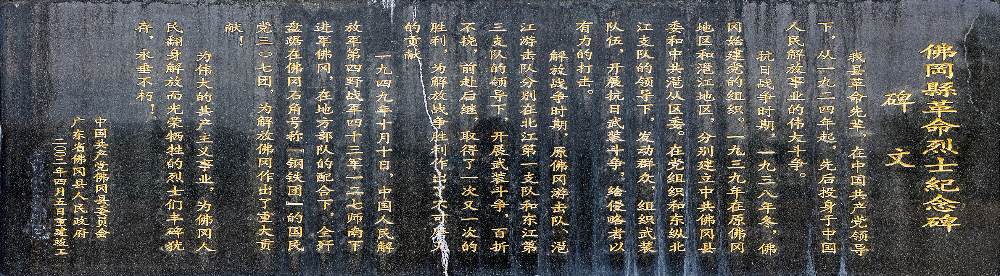 佛岡縣革命烈士紀念碑
碑文
我县革命先辈，在中国共产党领导
下，从一九二四年起，先后投身于中国
人民解放事业的伟大斗争。
抗日战争时期，一九三八年冬，佛
冈始建党的组织。一九三九年在原佛冈
地区和潖江地区，分别建立中共佛冈县
委和中共潖从区委。在党组织和东纵北
江支队的领导下，发动群众，组织武装
队伍，开展抗日武装斗争，给侵略者以
有力的打击。
解放战争时期，原佛冈游击队、潖
江游击队分别在北江第一支队和东江第
三支队的领导下，开展武装斗争，百折
不挠，前赴后继，取得了一次又一次的
胜利，为解放战争胜利作出了不可磨灭
的贡献。
一九四九年十月十日，中国人民解
放军第四野战军四十三军一二七师南下
进军佛冈，在地方部队的配合下，全歼
盘踞在佛冈之角号称「钢铁团」的国民
党三〇七团，为解放佛冈作出了重大贡
献！
为伟大的共产主义事业，为佛冈人
民翻身解放而光荣牺牲的烈士们丰碑犹
存，永垂不朽！
中国共产党佛冈县委员会
广东省佛冈县人民政府
二〇〇二年四月五日重建竣工